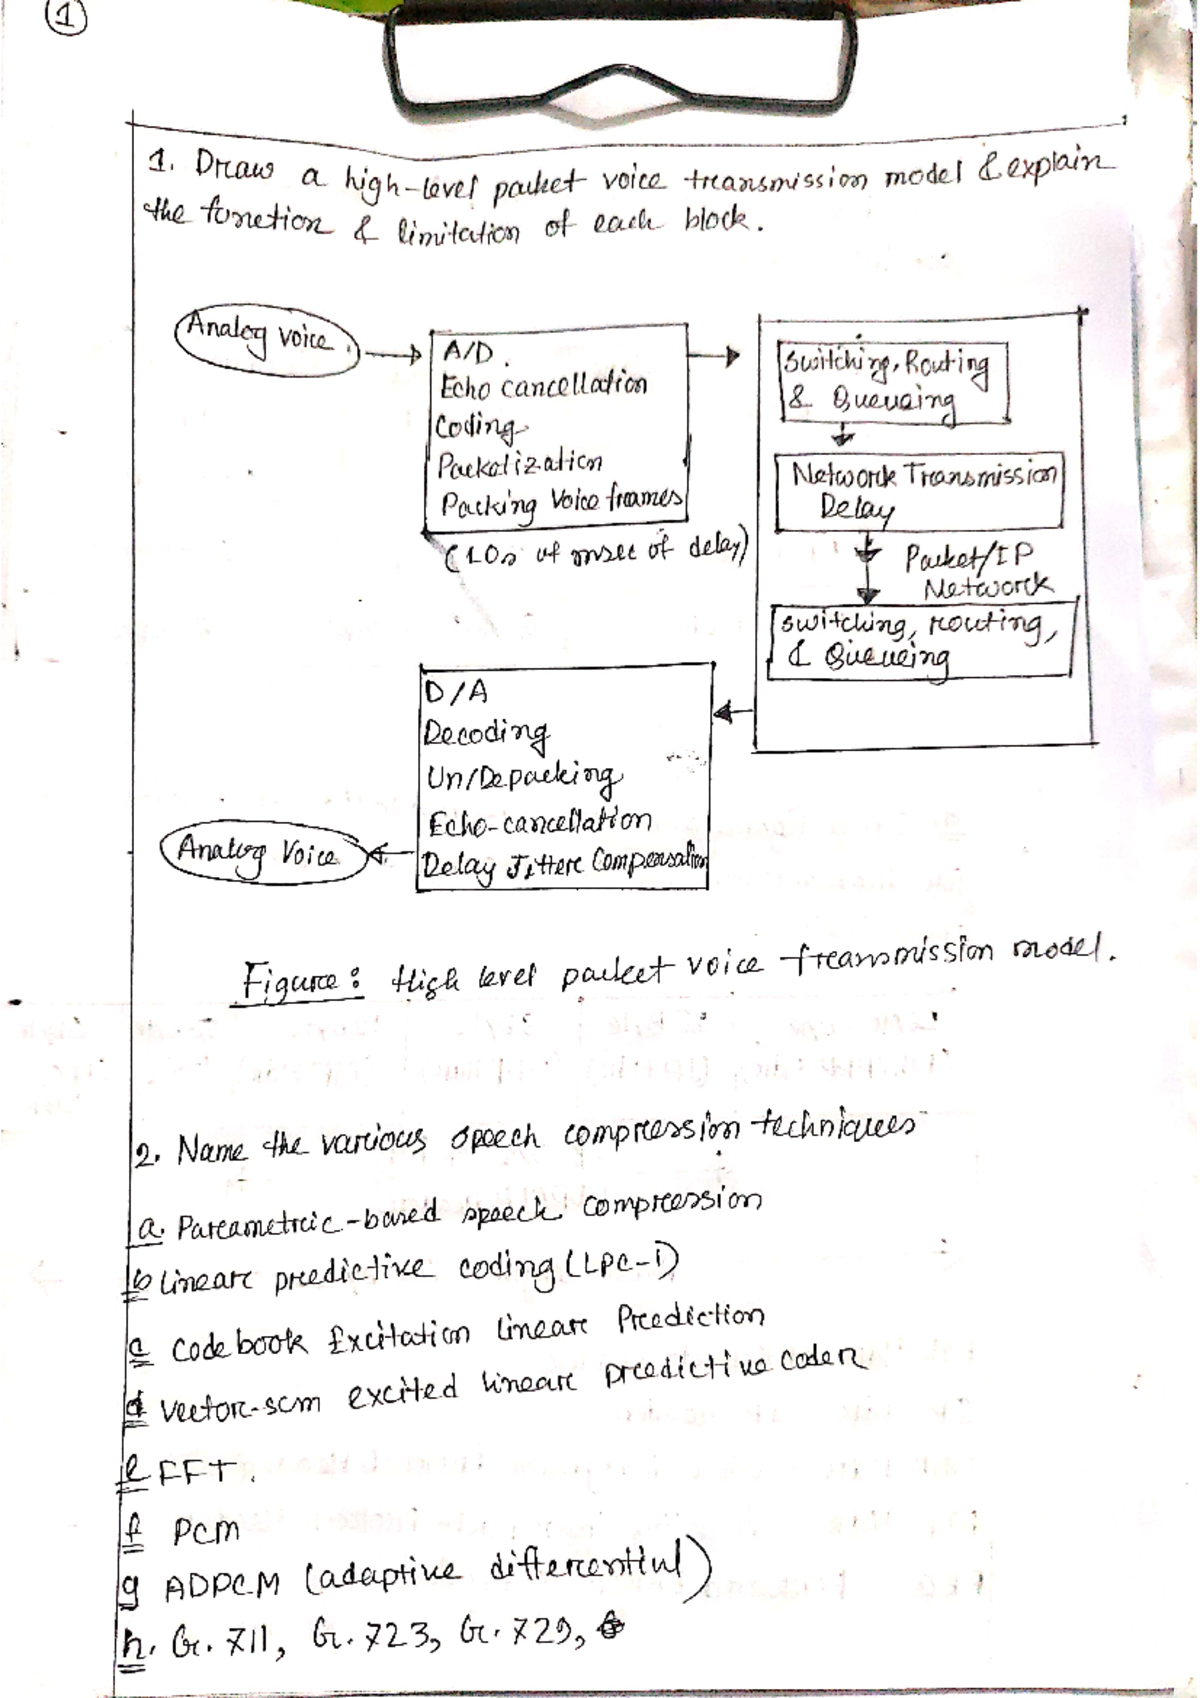 1
1. Draw a high-level packet voice transmission model & explain
the function & limitation of each block.
Analog voice
A/D
Echo cancellation
Coding
Packetization
Packing Voice frames
(10s of msec of delay)
Switching, Routing
& Queueing
Network Transmission
Delay
Packet/IP
Network
switching, routing,
& Queueing
D/A
Decoding
Un/Depacking
Echo-cancellation
Delay Jitter Compensation
Analog Voice
Figure: High level packet voice transmission model.
2. Name the various speech compression techniques
a. Parametric-based speech compression
b Linear predictive coding (LPC-1)
c Codebook Excitation Linear Prediction
d Vector-scm excited linear predictive coder
e FFT.
f PCM
g ADPCM (adaptive differential)
h. G. 711, G. 723, G. 729,